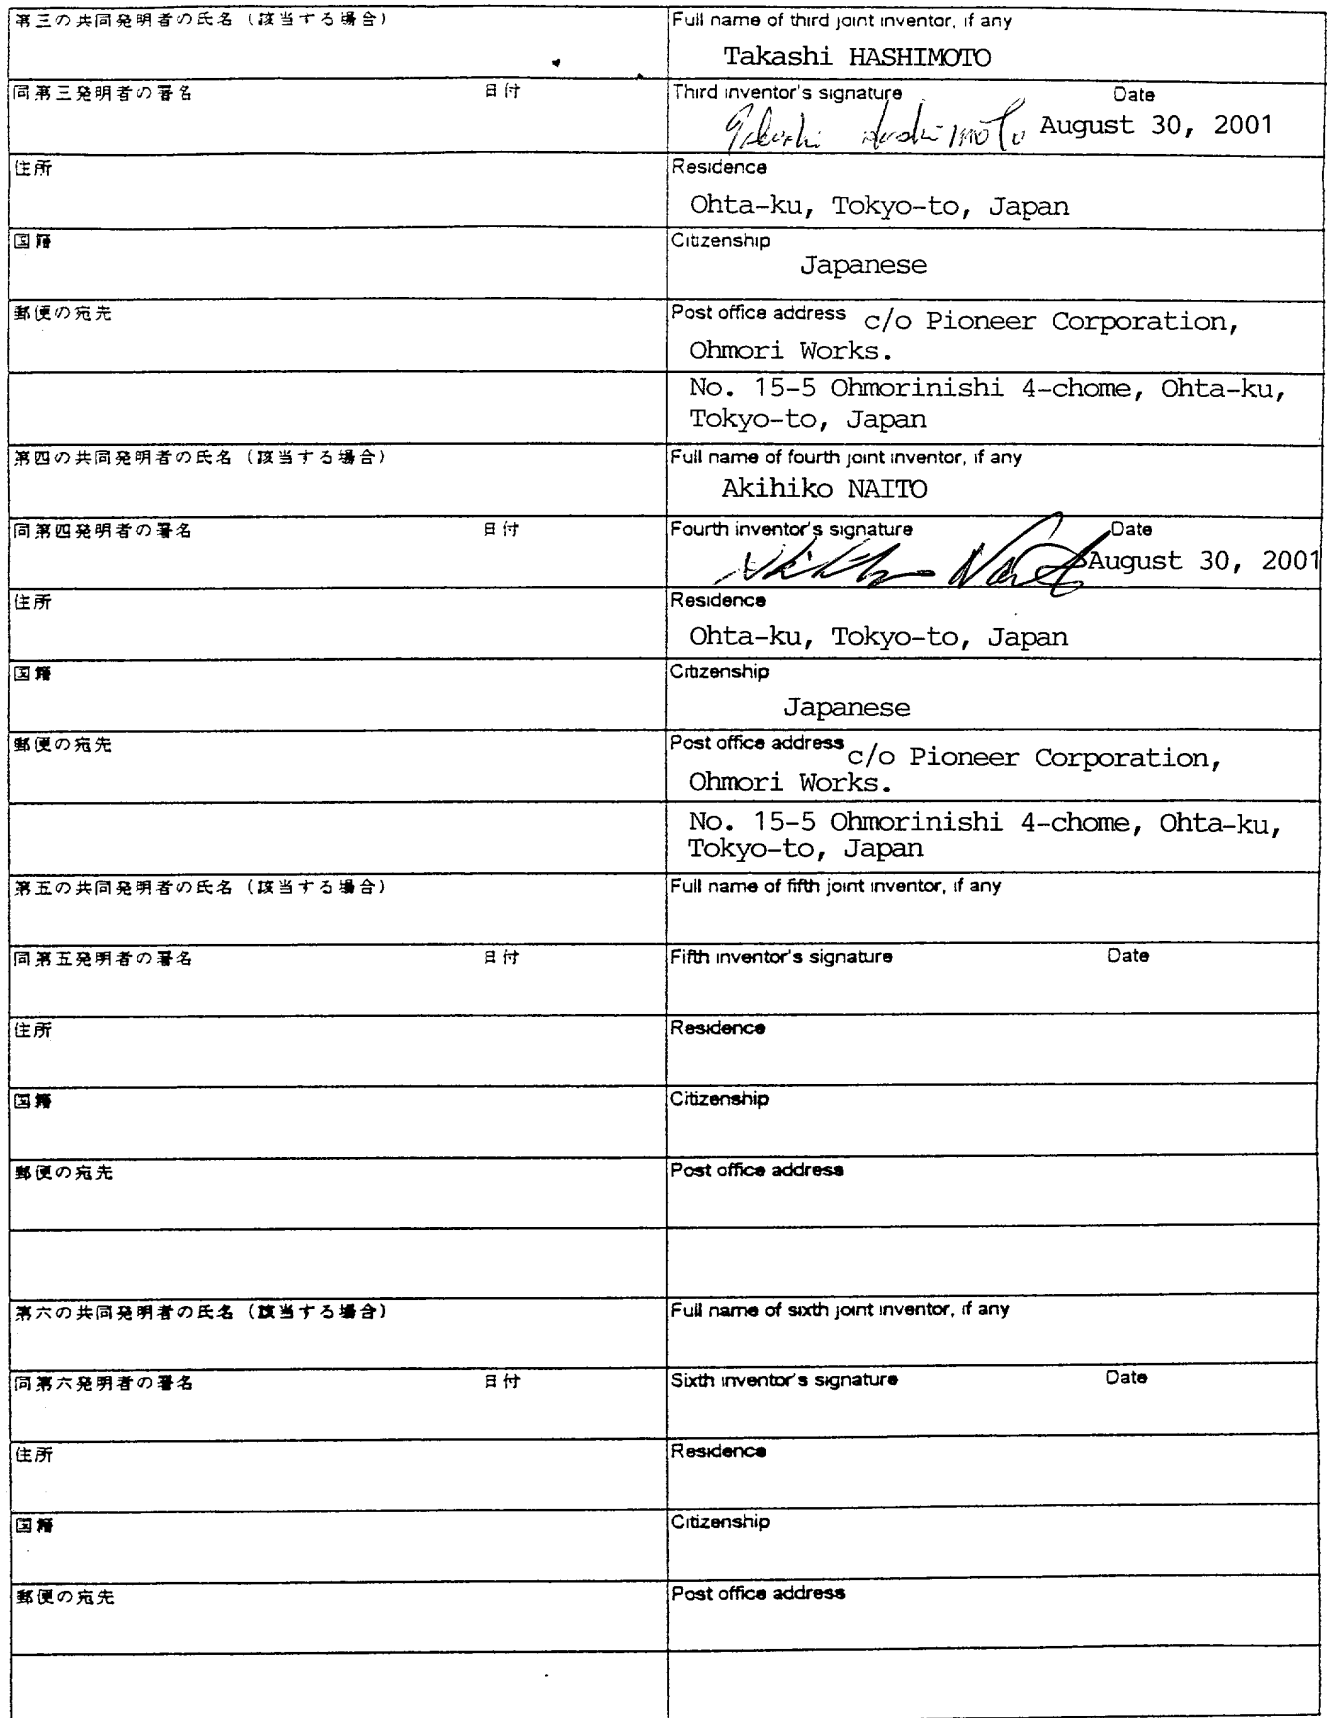 第三の共同発明者の氏名（該当する場合）
Full name of third joint inventor, if any
Takashi HASHIMOTO
同第三発明者の署名 日付
Third inventor's signature Date
Takashi Hashimoto August 30, 2001
住所
Residence
Ohta-ku, Tokyo-to, Japan
国籍
Citizenship
Japanese
郵便の宛先
Post office address c/o Pioneer Corporation,
Ohmori Works.
No. 15-5 Ohmorinishi 4-chome, Ohta-ku,
Tokyo-to, Japan
第四の共同発明者の氏名（該当する場合）
Full name of fourth joint inventor, if any
Akihiko NAITO
同第四発明者の署名 日付
Fourth inventor's signature Date
August 30, 2001
住所
Residence
Ohta-ku, Tokyo-to, Japan
国籍
Citizenship
Japanese
郵便の宛先
Post office address c/o Pioneer Corporation,
Ohmori Works.
No. 15-5 Ohmorinishi 4-chome, Ohta-ku,
Tokyo-to, Japan
第五の共同発明者の氏名（該当する場合）
Full name of fifth joint inventor, if any
同第五発明者の署名 日付
Fifth inventor's signature Date
住所
Residence
国籍
Citizenship
郵便の宛先
Post office address
第六の共同発明者の氏名（該当する場合）
Full name of sixth joint inventor, if any
同第六発明者の署名 日付
Sixth inventor's signature Date
住所
Residence
国籍
Citizenship
郵便の宛先
Post office address